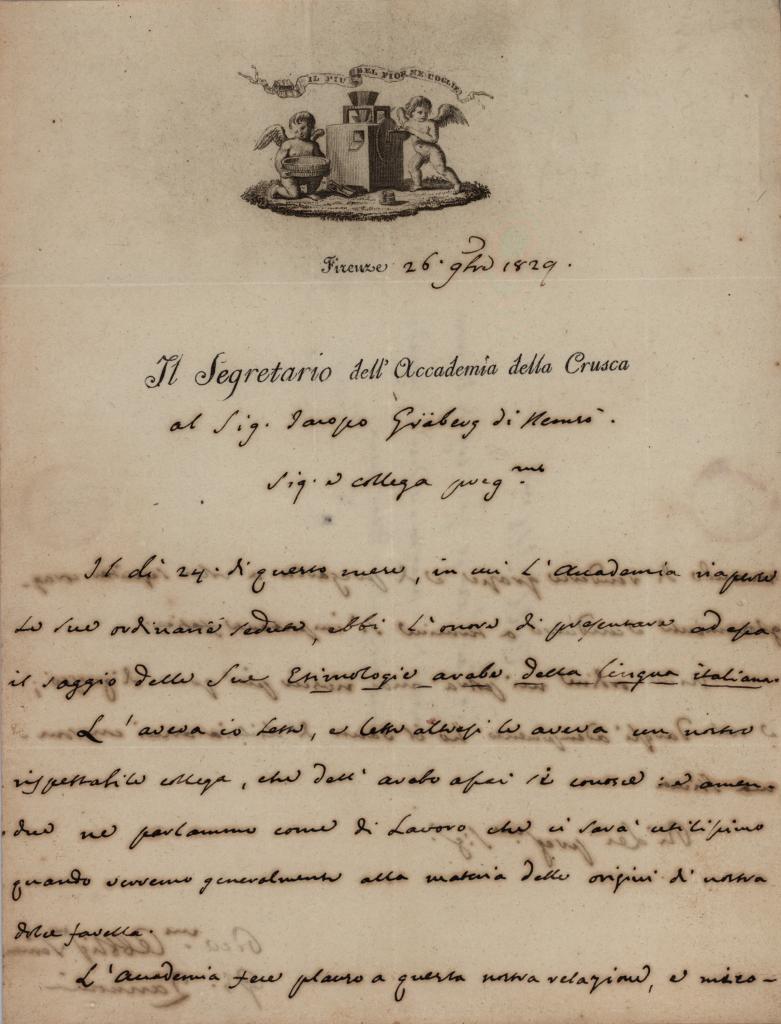 IL PIÙ BEL FIOR NE COGLIE
Firenze 26. 9bre 1829.
Il Segretario dell' Accademia della Crusca
al Sig. Iacopo Gräberg di Hemsö.
Sig. e collega preg.mo
Il dì 24. di questo mese, in cui l'Accademia riaperse
le sue ordinarie sedute, ebbi l'onore di presentare ad essa
il saggio delle sue Etimologie arabe della lingua italiana.
L'aveva io letto, e letto altresì lo aveva un nostro
rispettabile collega, che dell' arabo assai si conosce: e amen-
due ne parlammo come di lavoro che ci sarà utilissimo
quando verremo generalmente alla materia delle origini di nostra
dolce favella.
L'Accademia fece plauso a questa nostra relazione, e